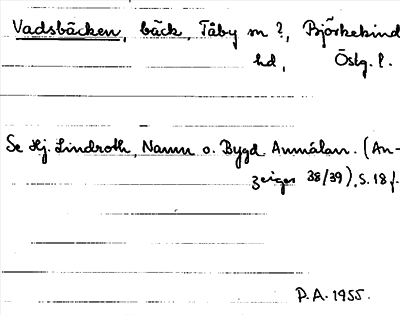 Vadsbäcken, bäck, Tåby sn ?, Björkekind
hd, Östg. l.
Se Hj. Lindroth, Namn o. Bygd Anmälan. (An-
zeiger 38/39), s. 18 f.
P.A. 1955.